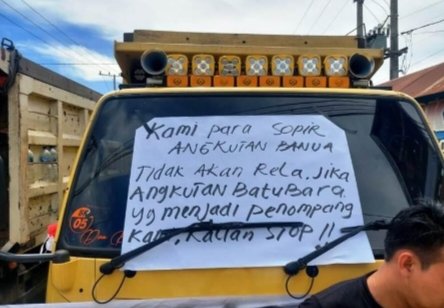 Kami para SOPIR
ANGKUTAN BANUA
Tidak Akan Rela. Jika
ANGKUTAN BatuBara
yg menjadi penompang
Kami. Kalian STOP !!
05